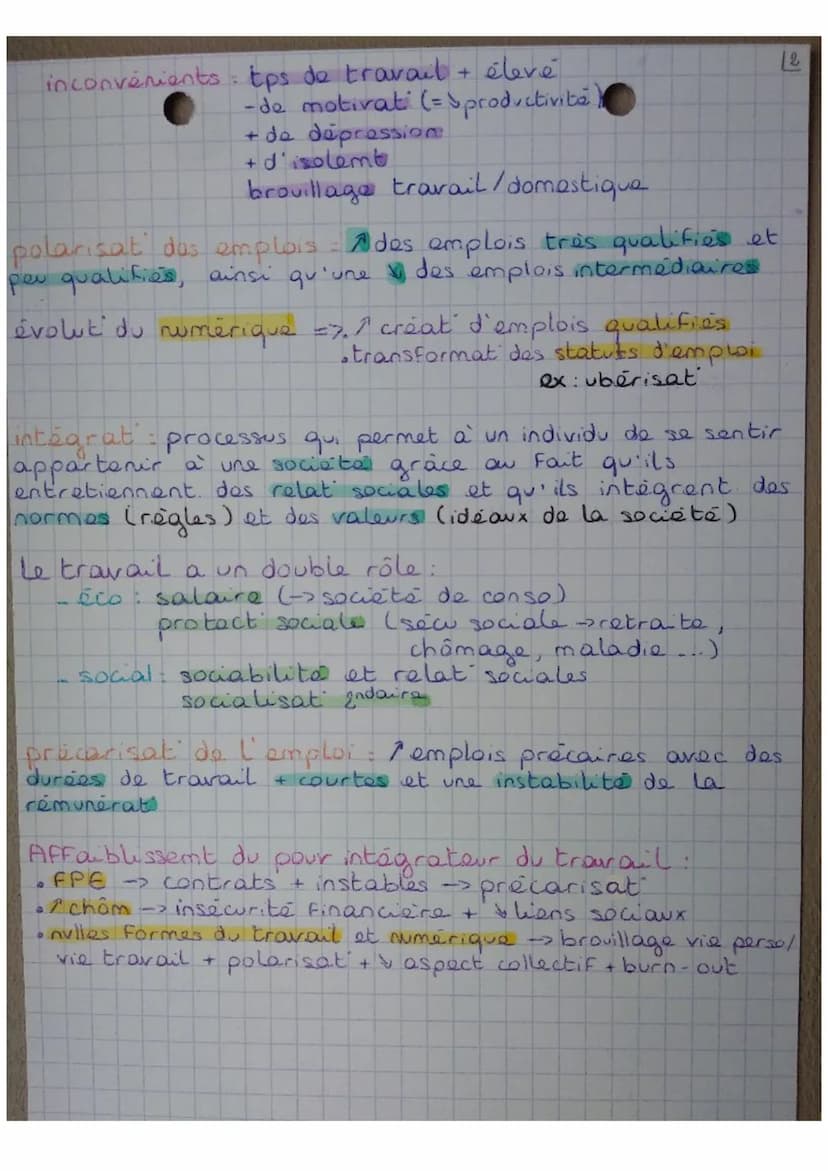 L2
inconvénients : tps de travail + élevé
- de motivat° (= ↘ productivité)
+ de dépression
+ d'isolemt
brouillage travail/domestique
polarisat° des emplois : ↗ des emplois très qualifiés et
peu qualifiés, ainsi qu'une ↘ des emplois intermédiaires
évolut° du numérique => • ↗ créat° d'emplois qualifiés
• transformat° des statuts d'emploi
ex : ubérisat°
intégrat° : processus qui permet à un individu de se sentir
appartenir à une société grâce au fait qu'ils
entretiennent des relat° sociales et qu'ils intègrent des
normes (règles) et des valeurs (idéaux de la société)
Le travail a un double rôle :
- éco : salaire (-> société de conso)
protect° sociale (sécu sociale -> retraite,
chômage, maladie ...)
- social : sociabilité et relat° sociales
socialisat° 2ndaire
précarisat° de l'emploi : ↗ emplois précaires avec des
durées de travail + courtes et une instabilité de la
rémunérat°
Affaiblissemt du pour intégrateur du travail :
• FPE -> contrats + instables -> précarisat°
• ↗ chôm -> insécurité financière + ↘ liens sociaux
• nvlles formes du travail et numérique -> brouillage vie perso/
vie travail + polarisat° + ↘ aspect collectif + burn-out